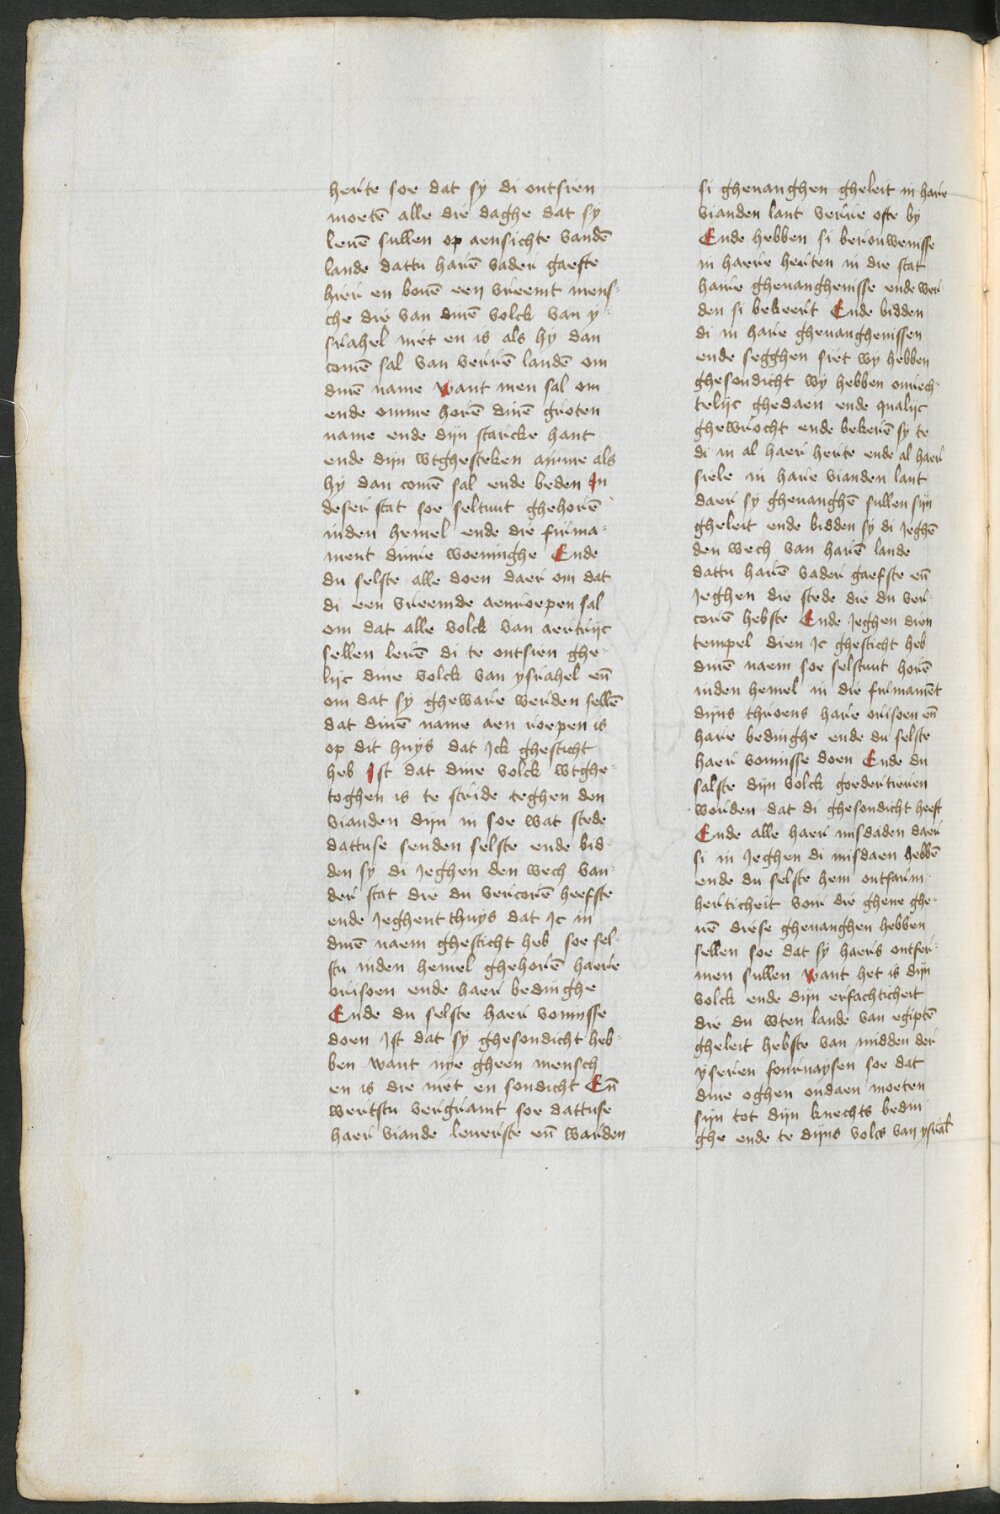 herte soe dat sy di ontsien
moetē alle die daghe dat sy
leuē sullen op aensichte vandē
lande dattu harē vader gaefste
hier en bouē een vreemt mens-
che die van dinē volck van y-
srahel niet en is als hy dan
comē sal van verrē landē om
dinē name want men sal om
ende omme horē dinē groten
name ende dijn starcke hant
ende dijn wtghesteken arme als
hy dan comē sal ende beden In
deser stat soe seltuut ghehorē
inden hemel ende die firma-
ment dinre woeninghe Ende
du selste alle doen daer om dat
di een vreemde aenroepen sal
om dat alle volck van aertrijc
sellen lerē di te ontsien ghe-
lijc dine volck van ysrahel eñ
om dat sy gheware werden sellē
dat dinē name aen roepen is
op dit huys dat Ick ghesticht
heb Ist dat dine volck wtghe-
toghen is te stride teghen den
vianden dijn in soe wat stede
dattuse senden selste ende bid-
den sy di Jeghen den wech van-
der stat die du vercorē heefste
ende Jeghent thuys dat Jc in
dinē naem ghesticht heb soe sel-
stu inden hemel ghehorē haere
orisoen ende haer bedinghe
Ende du selste haer vonnisse
doen Ist dat sy ghesondicht heb-
ben want nye gheen mensch
en is die niet en sondicht Eñ
wertstu vergramt soe dattuse
haer viande leuerste eñ warden
si gheuanghen gheleit in hare
vianden lant verre ofte by
Ende hebben si berouwenisse
in haere herten in die stat
haire gheuanghenisse ende wer-
den si bekeert Ende bidden
di in hare gheuanghenissen
ende segghen siet wy hebben
ghesondicht wy hebben onrech-
telijc ghedaen ende qualijc
ghewrocht ende bekerē sy te
di in al haer herte ende al haer
siele in hare vianden lant
daer sy gheuanghē sullen sijn
gheleit ende bidden sy di Jeghē
den wech van harē lande
dattu harē vader gaefste eñ
Jeghen die stede die du ver-
corē hebste Ende Jeghen dien
tempel dien Jc ghesticht heb
dinē naem soe selstuut horē
inden hemel in die firmamēt
dijns throens hare orisoen eñ
hare bedinghe ende du selste
haer vonnisse doen Ende du
salste dijn volck goedertieren
worden dat di ghesondicht heeft
Ende alle haer misdaden daer
si in Jeghen di misdaen hebbē
ende du selste hem ontfarm-
herticheit voir die ghene ghe-
uē diese gheuanghen hebben
sellen soe dat sy haers ontfer-
men sullen want het is dijn
volck ende dijn erfachticheit
die du wten lande van egiptē
gheleit hebste van midden der
yseren fournaysen soe dat
dine oghen ondaen moeten
sijn tot dijn knechts bedin-
ghe ende te dijns volcs van ysrāl